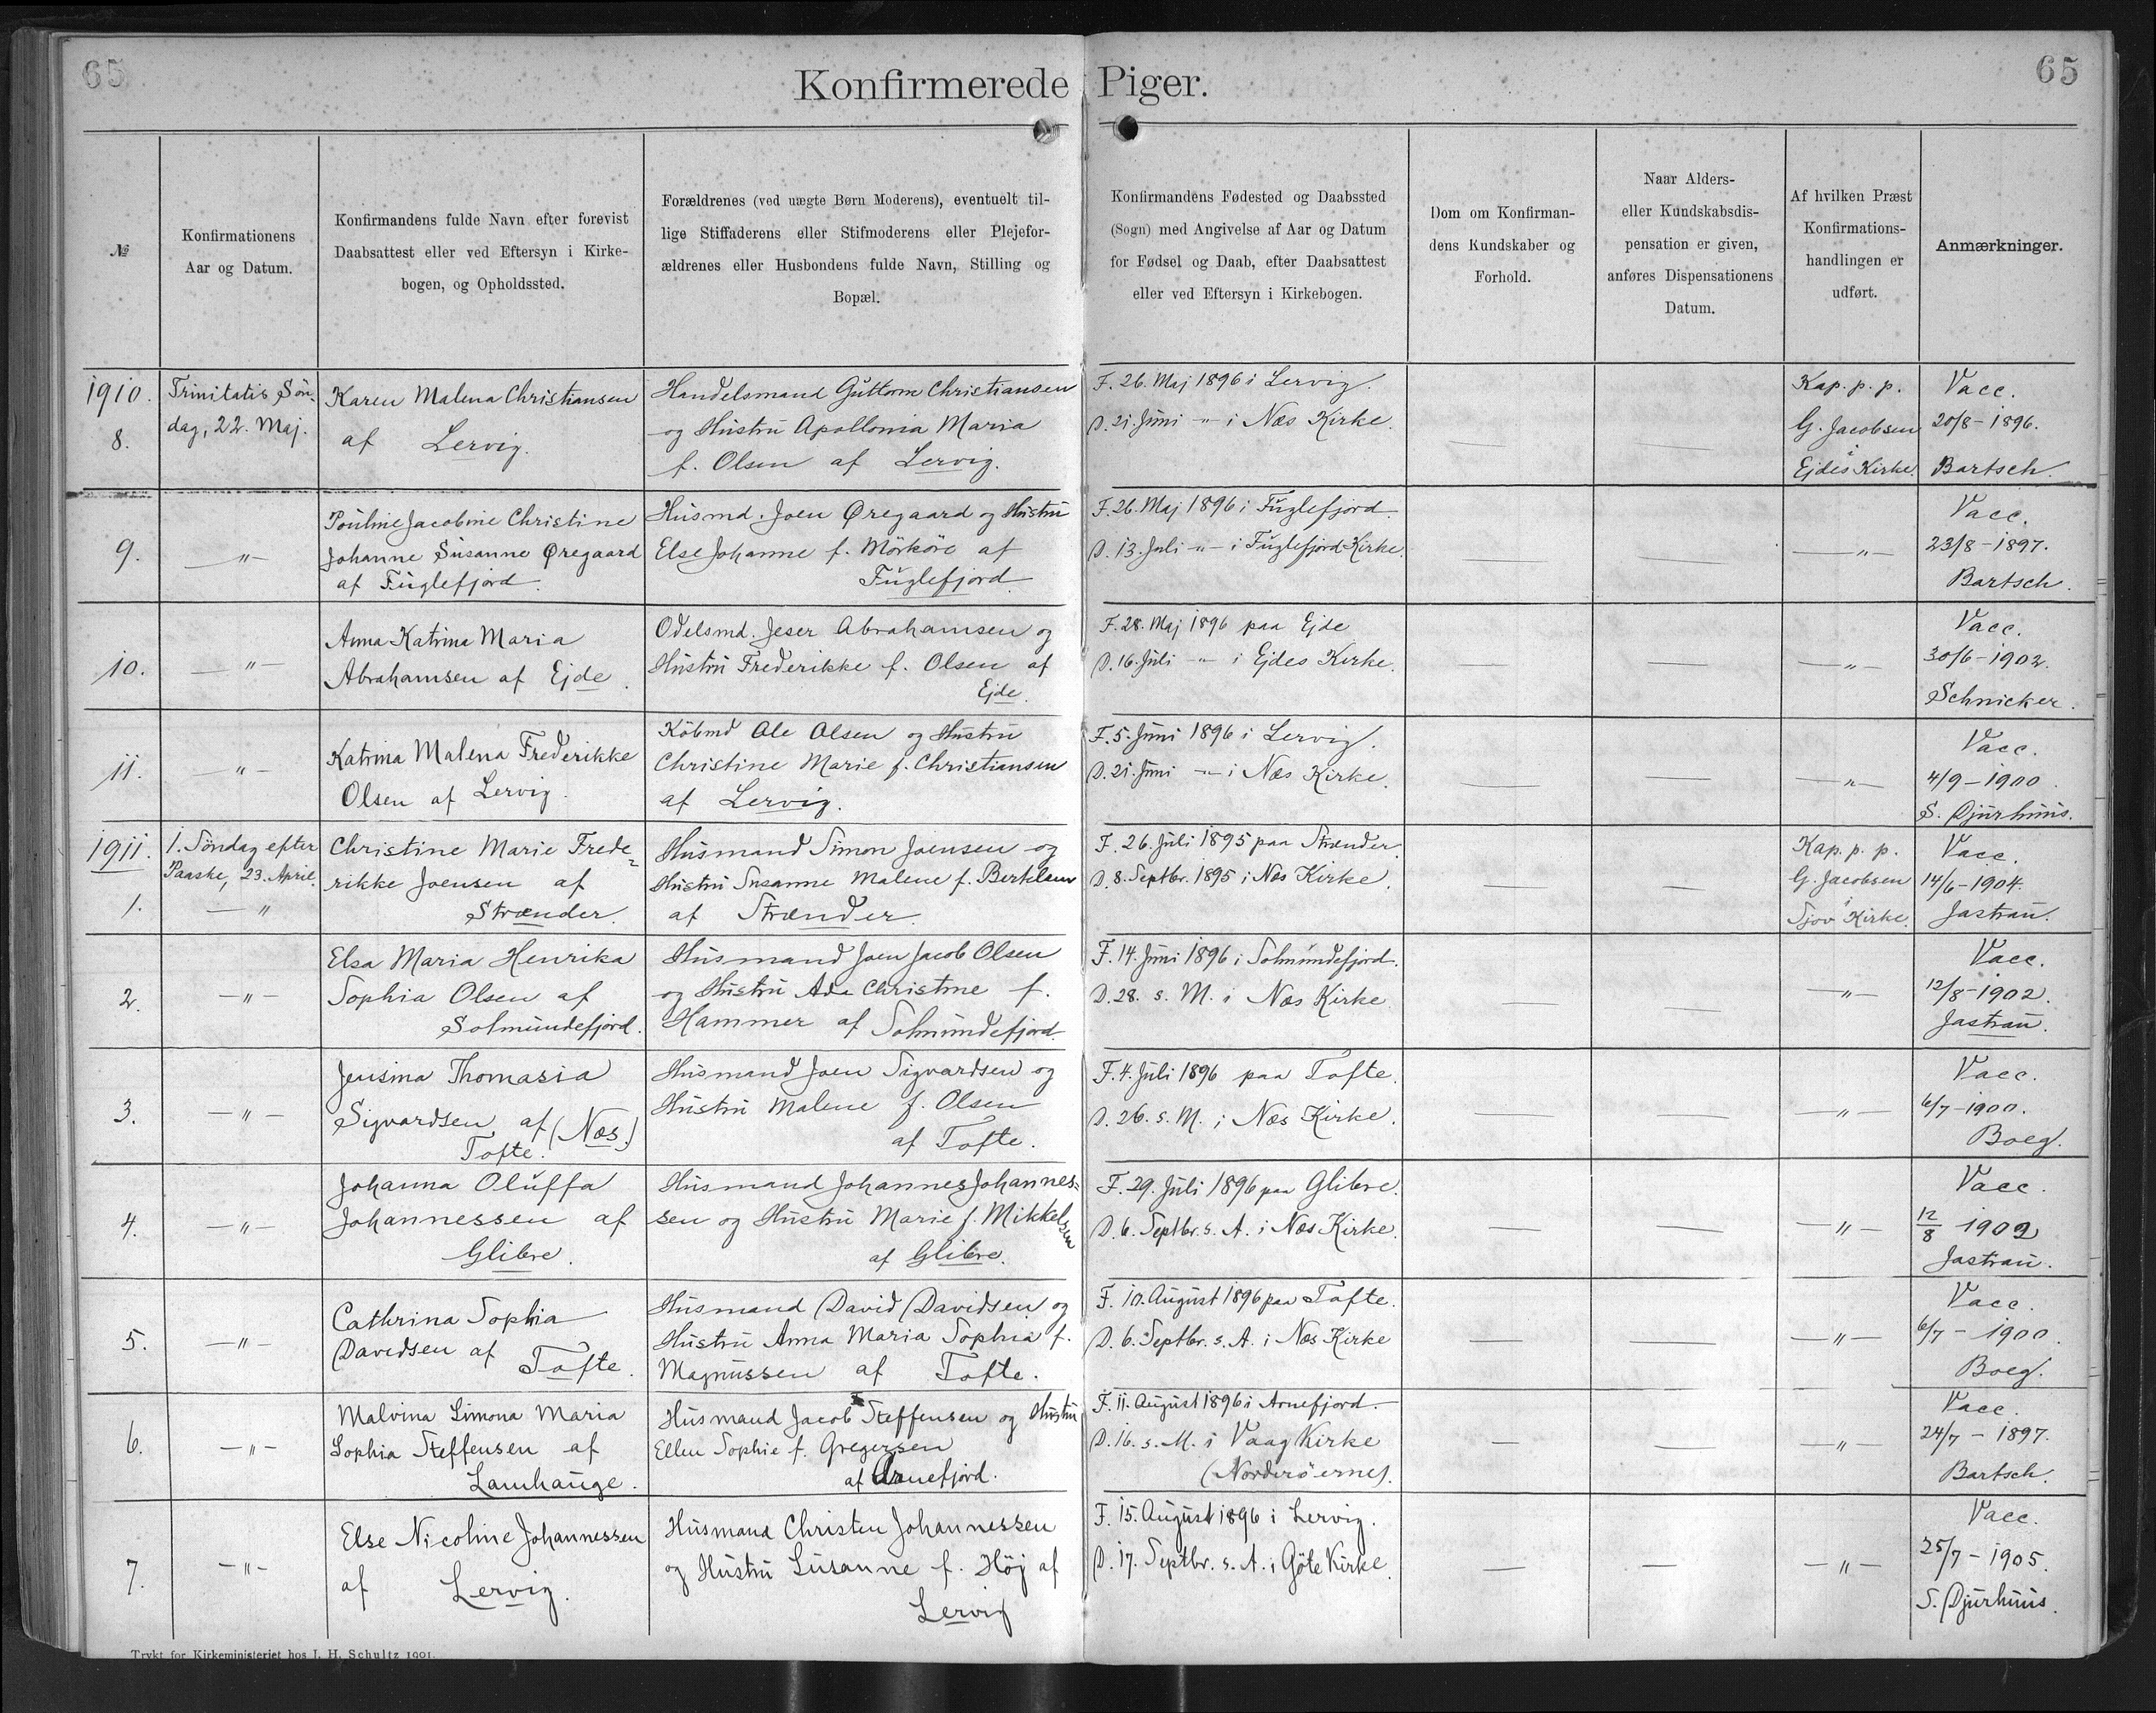 65
Konfirmerede Piger.
65
№
Konfirmationens
Aar og Datum.
Konfirmandens fulde Navn efter forevist
Daabsattest eller ved Eftersyn i Kirke-
bogen, og Opholdssted.
Forældrenes (ved uægte Børn Moderens), eventuelt til-
lige Stiffaderens eller Stifmoderens eller Plejefor-
ældrenes eller Husbondens fulde Navn, Stilling og
Bopæl.
Konfirmandens Fødested og Daabssted
(Sogn) med Angivelse af Aar og Datum
for Fødsel og Daab, efter Daabsattest
eller ved Eftersyn i Kirkebogen.
Dom om Konfirman-
dens Kundskaber og
Forhold.
Naar Alders-
eller Kundskabsdis-
pensation er given,
anføres Dispensationens
Datum.
Af hvilken Præst
Konfirmations-
handlingen er
udført.
Anmærkninger.
1910.
8.
Trinitatis Søn-
dag, 22. Maj.
Karen Malena Christiansen
af Lervig.
Handelsmand Guttorm Christiansen
og Hustru Apollonia Maria
f. Olsen af Lervig.
F. 26. Maj 1896 i Lervig.
D. 21. Juni -"- i Næs Kirke.
—
—
Kap. p. p.
G. Jacobsen
i
Ejdes Kirke
Vacc.
20/8 - 1896.
Bartsch.
9.
—"—
Pouline Jacobine Christine
Johanne Susanne Øregaard
af Fuglefjord.
Husmd. Joen Øregaard og Hustru
Else Johanne f. Mörköre af
Fuglefjord.
F. 26. Maj 1896 i Fuglefjord.
D. 13. Juli -"- i Fuglefjord Kirke.
—
—
—"—
Vacc.
23/8 - 1897.
Bartsch.
10.
—"—
Anna Katrina Maria
Abrahamsen af Ejde.
Odelsmd. Jeser Abrahamsen og
Hustru Frederikke f. Olsen af
Ejde.
F. 28. Maj 1896 paa Ejde
D. 16. Juli -"- i Ejdes Kirke.
—
—
—"—
Vacc.
30/6 - 1902.
Schnicker.
11.
—"—
Katrina Malena Frederikke
Olsen af Lervig.
Købmd Ole Olsen og Hustru
Christine Marie f. Christiansen
af Lervig.
F. 5. Juni 1896 i Lervig.
D. 21. Juni -"- i Næs Kirke.
—
—
—"—
Vacc.
4/9 - 1900
S. Djurhuus.
1911.
1.
1. Søndag efter
Paaske, 23. April.
—"
Christine Marie Frede-
rikke Joensen af
Strænder.
Husmand Simon Joensen og
Hustru Susanne Malene f. Bertelsen
af Strænder.
F. 26. Juli 1895 paa Strænder.
D. 8. Septbr. 1895 i Næs Kirke.
—
—
Kap. p. p.
G. Jacobsen
i
Sjov Kirke.
Vacc.
14/6 - 1904.
Jastrau.
2.
—"—
Elsa Maria Henrika
Sophia Olsen af
Solmundefjord.
Husmand Joen Jacob Olsen
og Hustru Ada Christine f.
Hammer af Solmundefjord.
F. 14. Juni 1896 i Solmundefjord.
D. 28. s. M. i Næs Kirke
—
—
—"—
Vacc.
12/8 - 1902.
Jastrau.
3.
—"—
Jensina Thomasia
Sigvardsen af (Næs.)
Tofte.
Husmand Joen Sigvardsen og
Hustru Malene f. Olsen
af Tofte.
F. 4. Juli 1896 paa Tofte.
D. 26. s. M. i Næs Kirke.
—
—
—"—
Vacc.
6/7 - 1900.
Boeg.
4.
—"—
Johanna Oluffa
Johannessen af
Glibre.
Husmand Johannes Johannes-
sen og Hustru Marie f. Mikkelsen
af Glibre.
F. 29. Juli 1896 paa Glibre.
D. 6. Septbr. s. A. i Næs Kirke.
—
—
—"—
Vacc.
12/8 1902
Jastrau.
5.
—"—
Cathrina Sophia
Davidsen af Tofte.
Husmand David Davidsen og
Hustru Anna Maria Sophia f.
Magnussen af Tofte.
F. 10. August 1896 paa Tofte.
D. 6. Septbr. s. A. i Næs Kirke
—
—
—"—
Vacc.
6/7 - 1900.
Boeg.
6.
—"—
Malvina Simona Maria
Sophia Steffensen af
Lamhauge.
Husmand Jacob Steffensen og Hustru
Ellen Sophie f. Gregersen
af Arnefjord.
F. 11. August 1896 i Arnefjord.
D. 16. s. M. i Vaag Kirke
(Norderöerne).
—
—
—"—
Vacc.
24/7 - 1897.
Bartsch.
7.
—"—
Else Nicoline Johannessen
af Lervig.
Husmand Christen Johannessen
og Hustru Susanne f. Höj af
Lervig
F. 15. August 1896 i Lervig.
D. 17. Septbr. s. A. i Göte Kirke.
—
—
—"—
Vacc.
25/7 - 1905.
S. Djurhuus.
Trykt for Kirkeministeriet hos J. H. Schultz 1901.